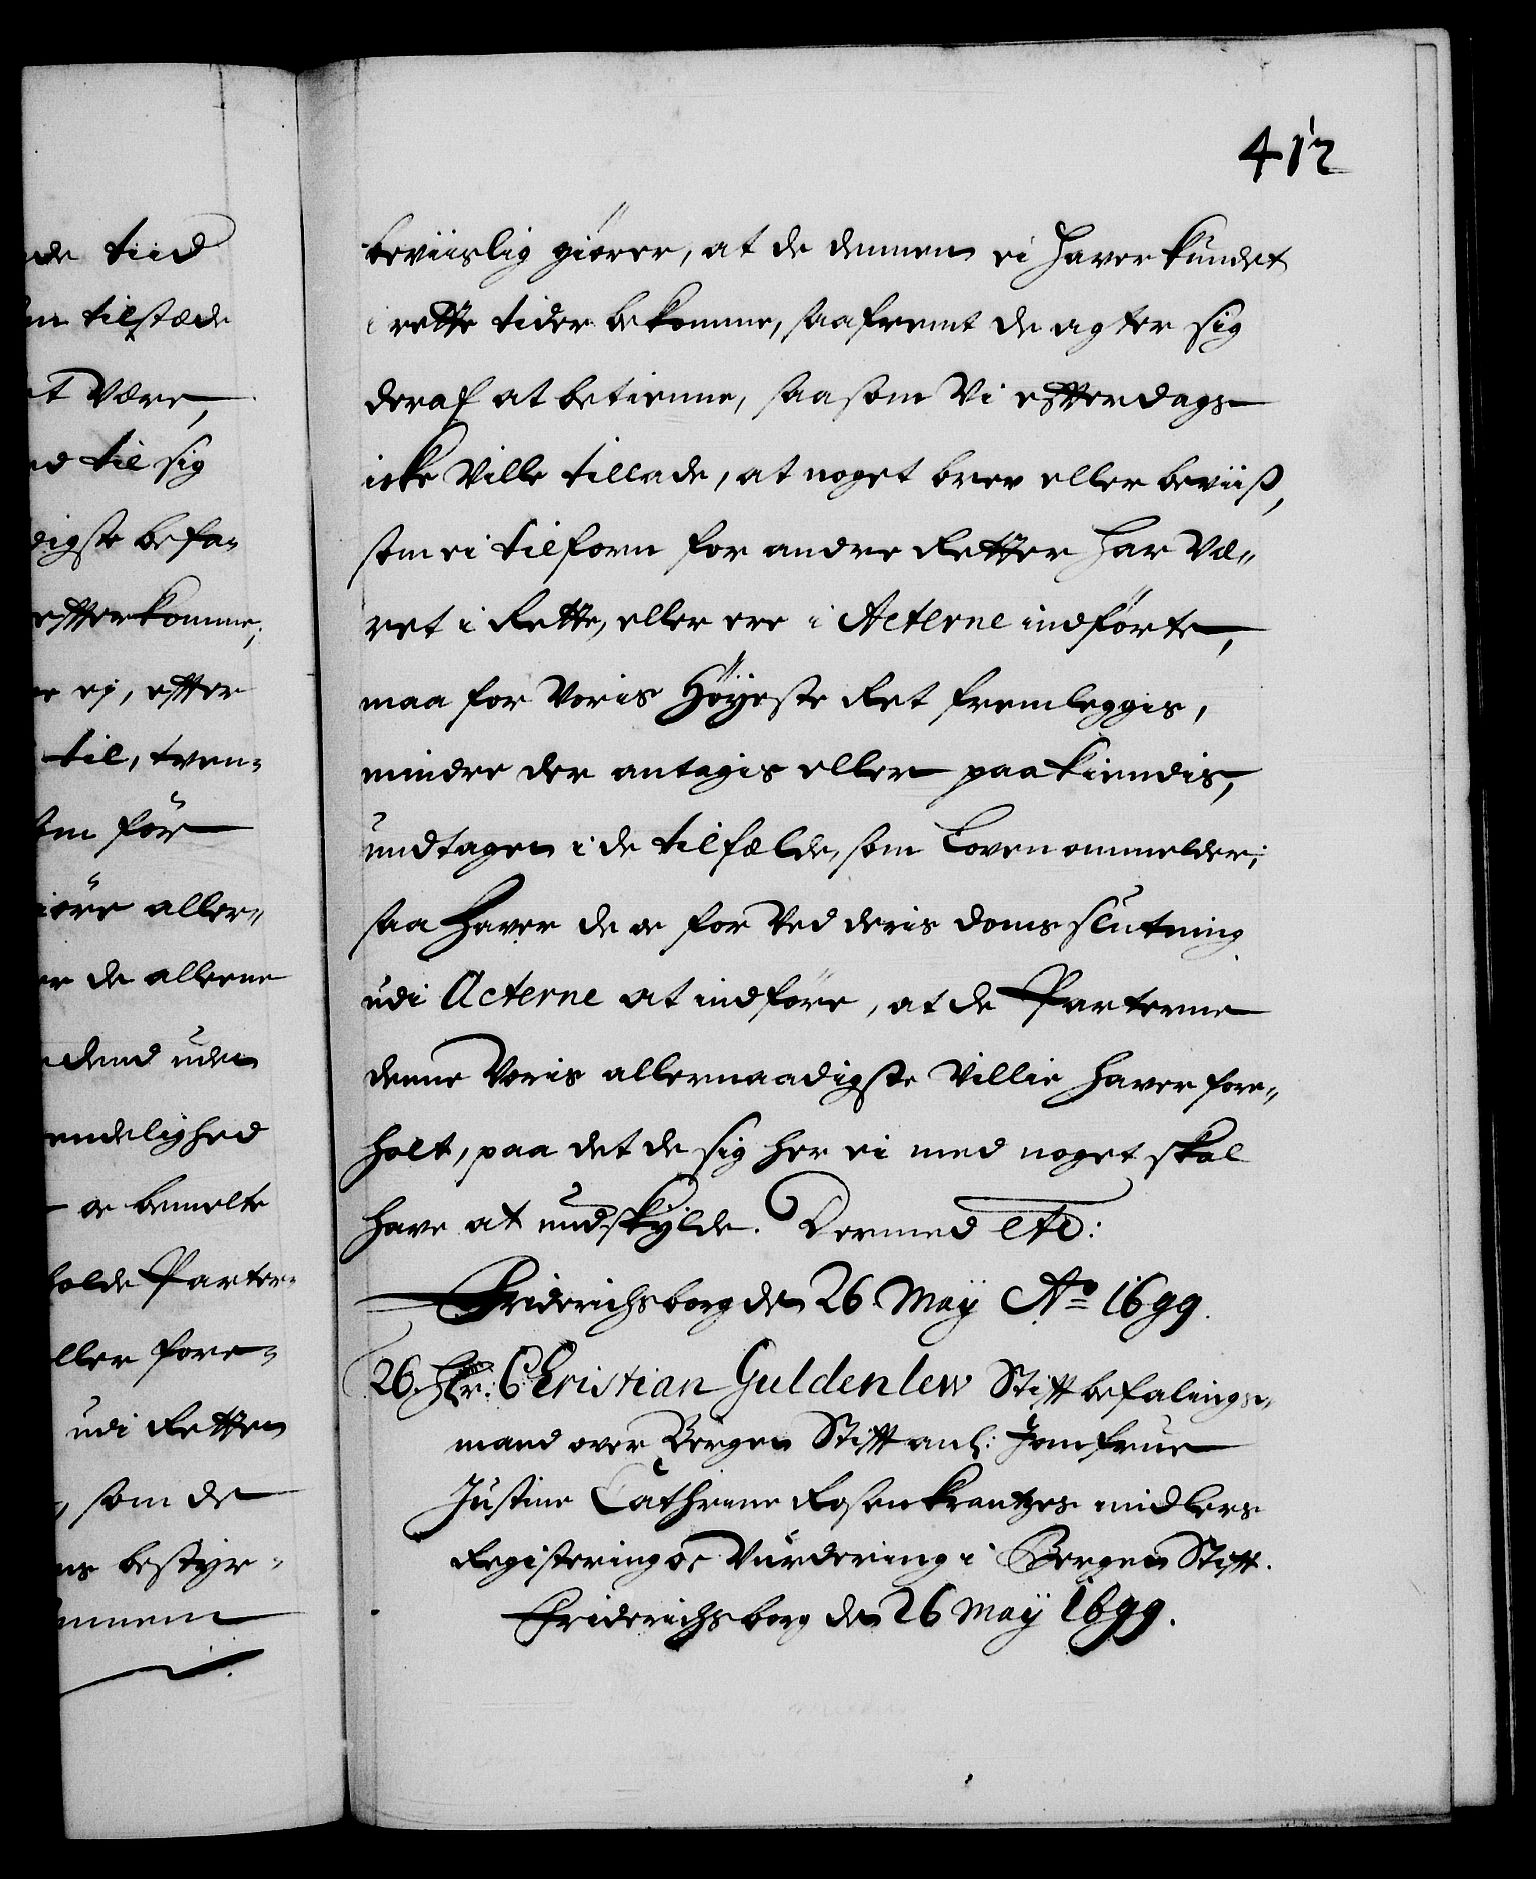 412
beviislig giörer, at de dennem ei haver kundet
i rette tider bekomme, saafremt de agter sig
deraf at betienne, saasom Vi effterdags
icke Ville tillade, at noget brev eller beviiß,
som ei tilforn for andre Retter har Væ„
ret i Rette, eller ere i Acterne indförte,
maa for Voris Höyeste Ret fremleggis,
mindre der antagis eller paakiendis,
undtagen i de tilfælde, som Loven ommelder;
saa haver de oc for Ved deris doms slutning
udi Acterne at indföre, at de Parterne
denne Voris allernaadigste Villie haver fore„
holt, paa det de sig her ei med noget skal
have at undskylde. Dermed etc:
Friderichsborg den 26 Maÿ Ao 1699.
26. Hr: Christian Guldenlew Stiftbefalings„
mand over Bergen Stifft anl: Jomfrue
Justine Cathrine Rosenkrantzes midlers
Registering oc Vurdering i Bergens Stift.
Friderichsborg den 26 Maÿ 1699.
de tiid
tilstæde
t Være,
d til sig
digste befa„
effterkomme;
ej, effter
til, tven„
som för
giöre aller„
de alleene
uden
endelighed
oc bemelte
holde Parter„
eller fore„
udi Retten
, som de
bestyr„